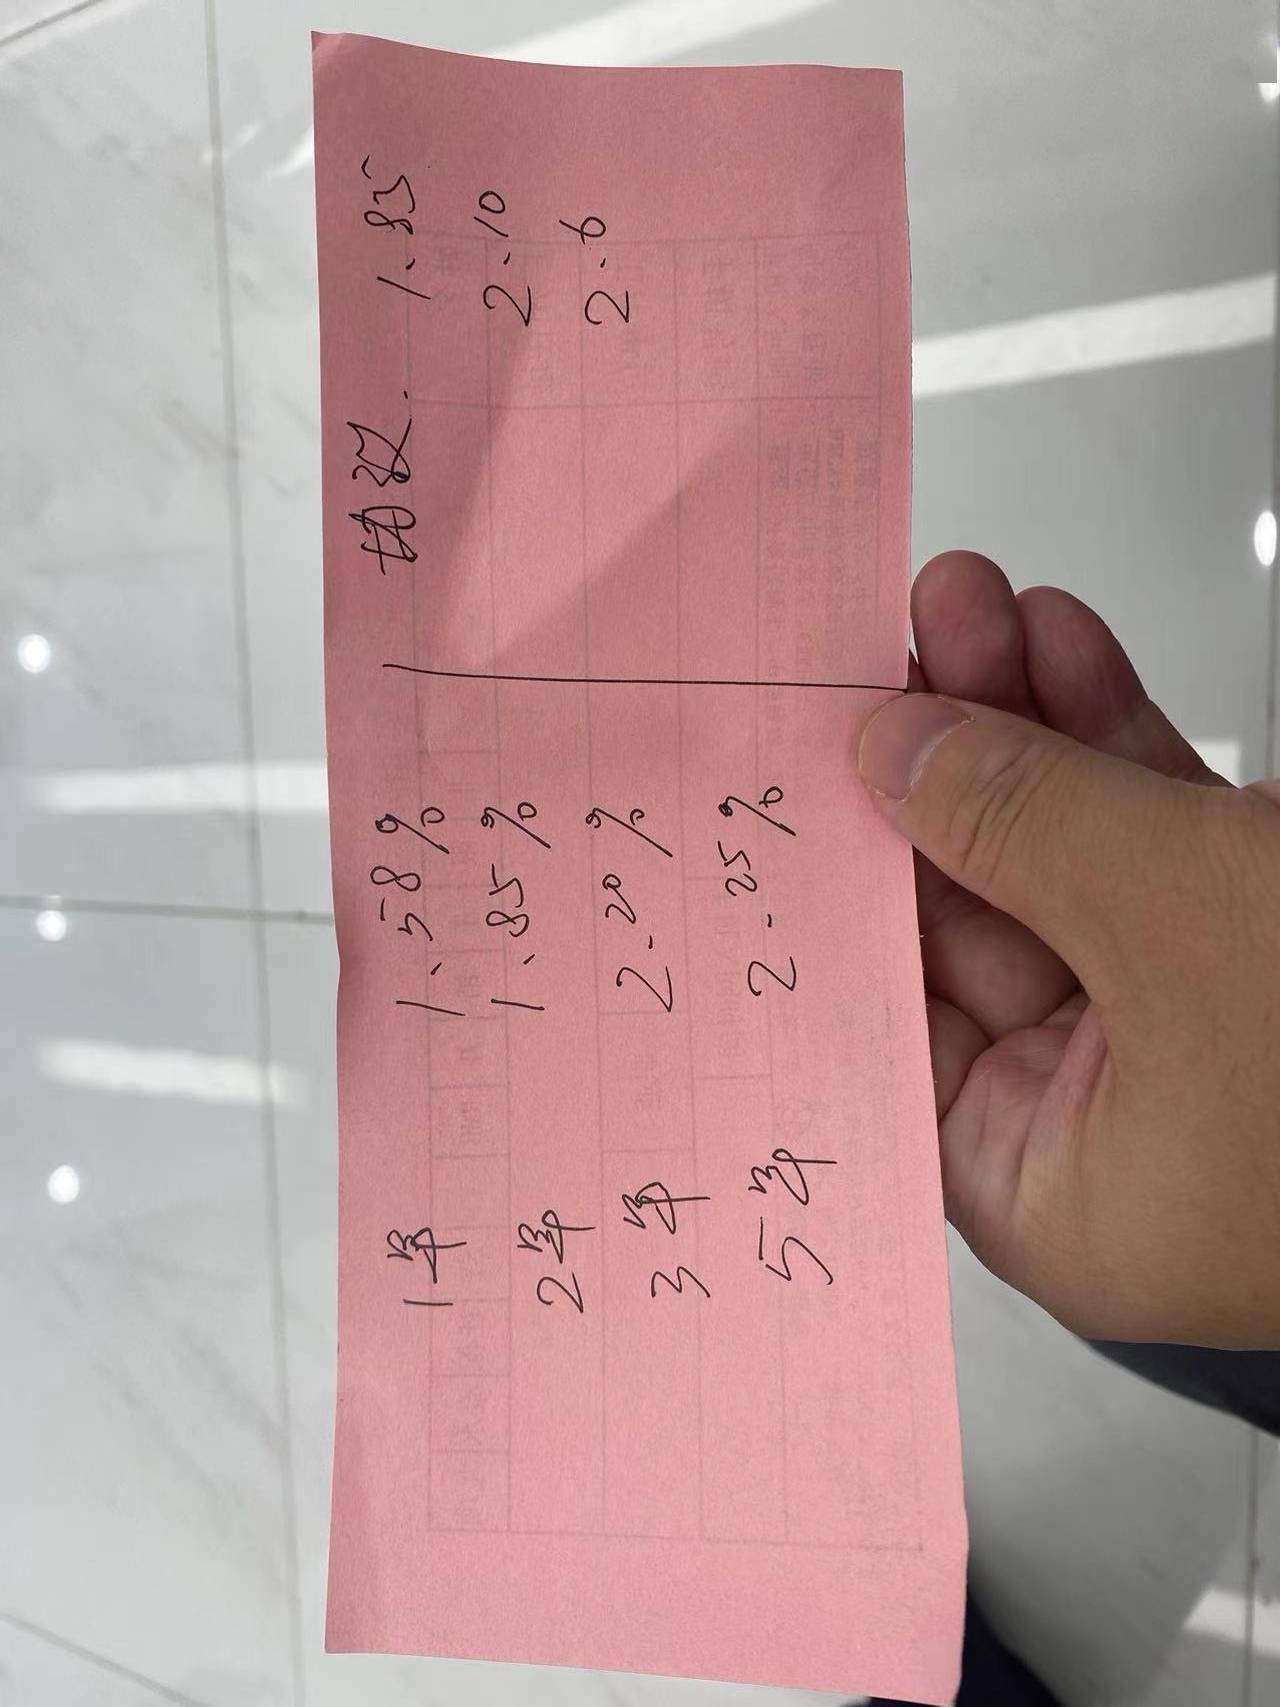 1年 1.58% 1.85
2年 1.85% 2.10
3年 2.20% 2.6
5年 2.25%